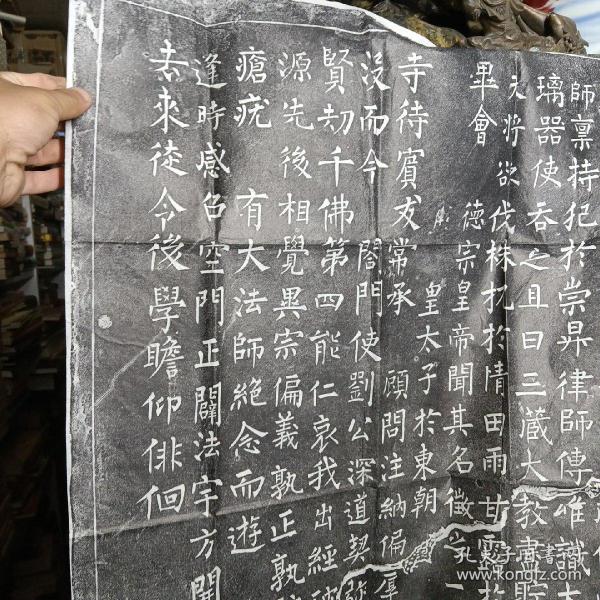 師稟持犯於崇昇律師傳唯識大
璃器使吞之且曰三藏大教盡貯
夫將欲伐株杌於情田雨甘露於
畢會 德宗皇帝聞其名徵之一
皇太子於東朝
寺待賓友常承 顧問注納偏厚
沒而今 閤門使劉公深道契弥
賢劫千佛第四能仁哀我出經破
源先後相覺異宗偏義孰正孰
瘡疣 有大法師絕念而遊
逢時感召空門正闢法宇方開
去來徒令後學瞻仰俳佪
孔夫子旧书网
www.kongfz.com